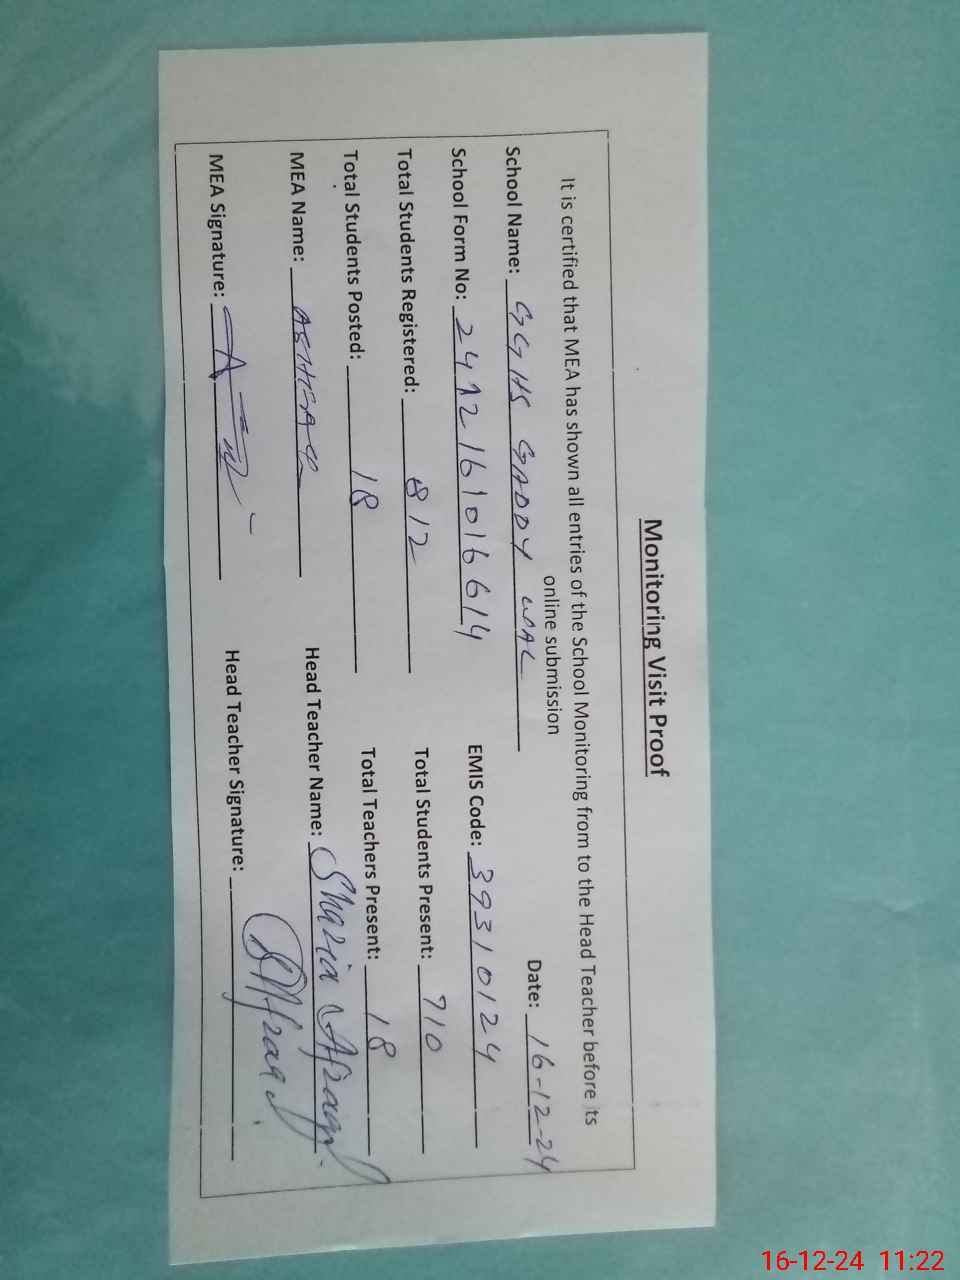 Monitoring Visit Proof
It is certified that MEA has shown all entries of the School Monitoring from to the Head Teacher before its
online submission
Date: 16-12-24
School Name: GGHS GADDY WAL
School Form No: 2412161016614 EMIS Code: 39310124
Total Students Registered: 812 Total Students Present: 710
Total Students Posted: 18 Total Teachers Present: 18
MEA Name: Head Teacher Name: Shazia
MEA Signature: Head Teacher Signature:
16-12-24 11:22